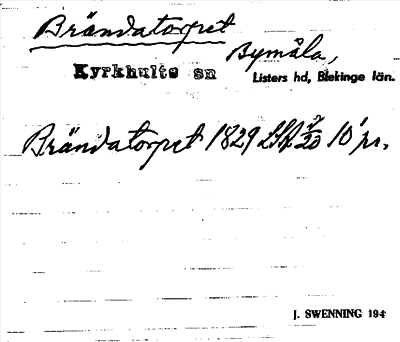 Brändatorpet
Bymåla,
Kyrkhults sn
Listers hd, Blekinge län.
Brändatorpet 1829 LSA 5/20 10 ps.
J. SWENNING 194